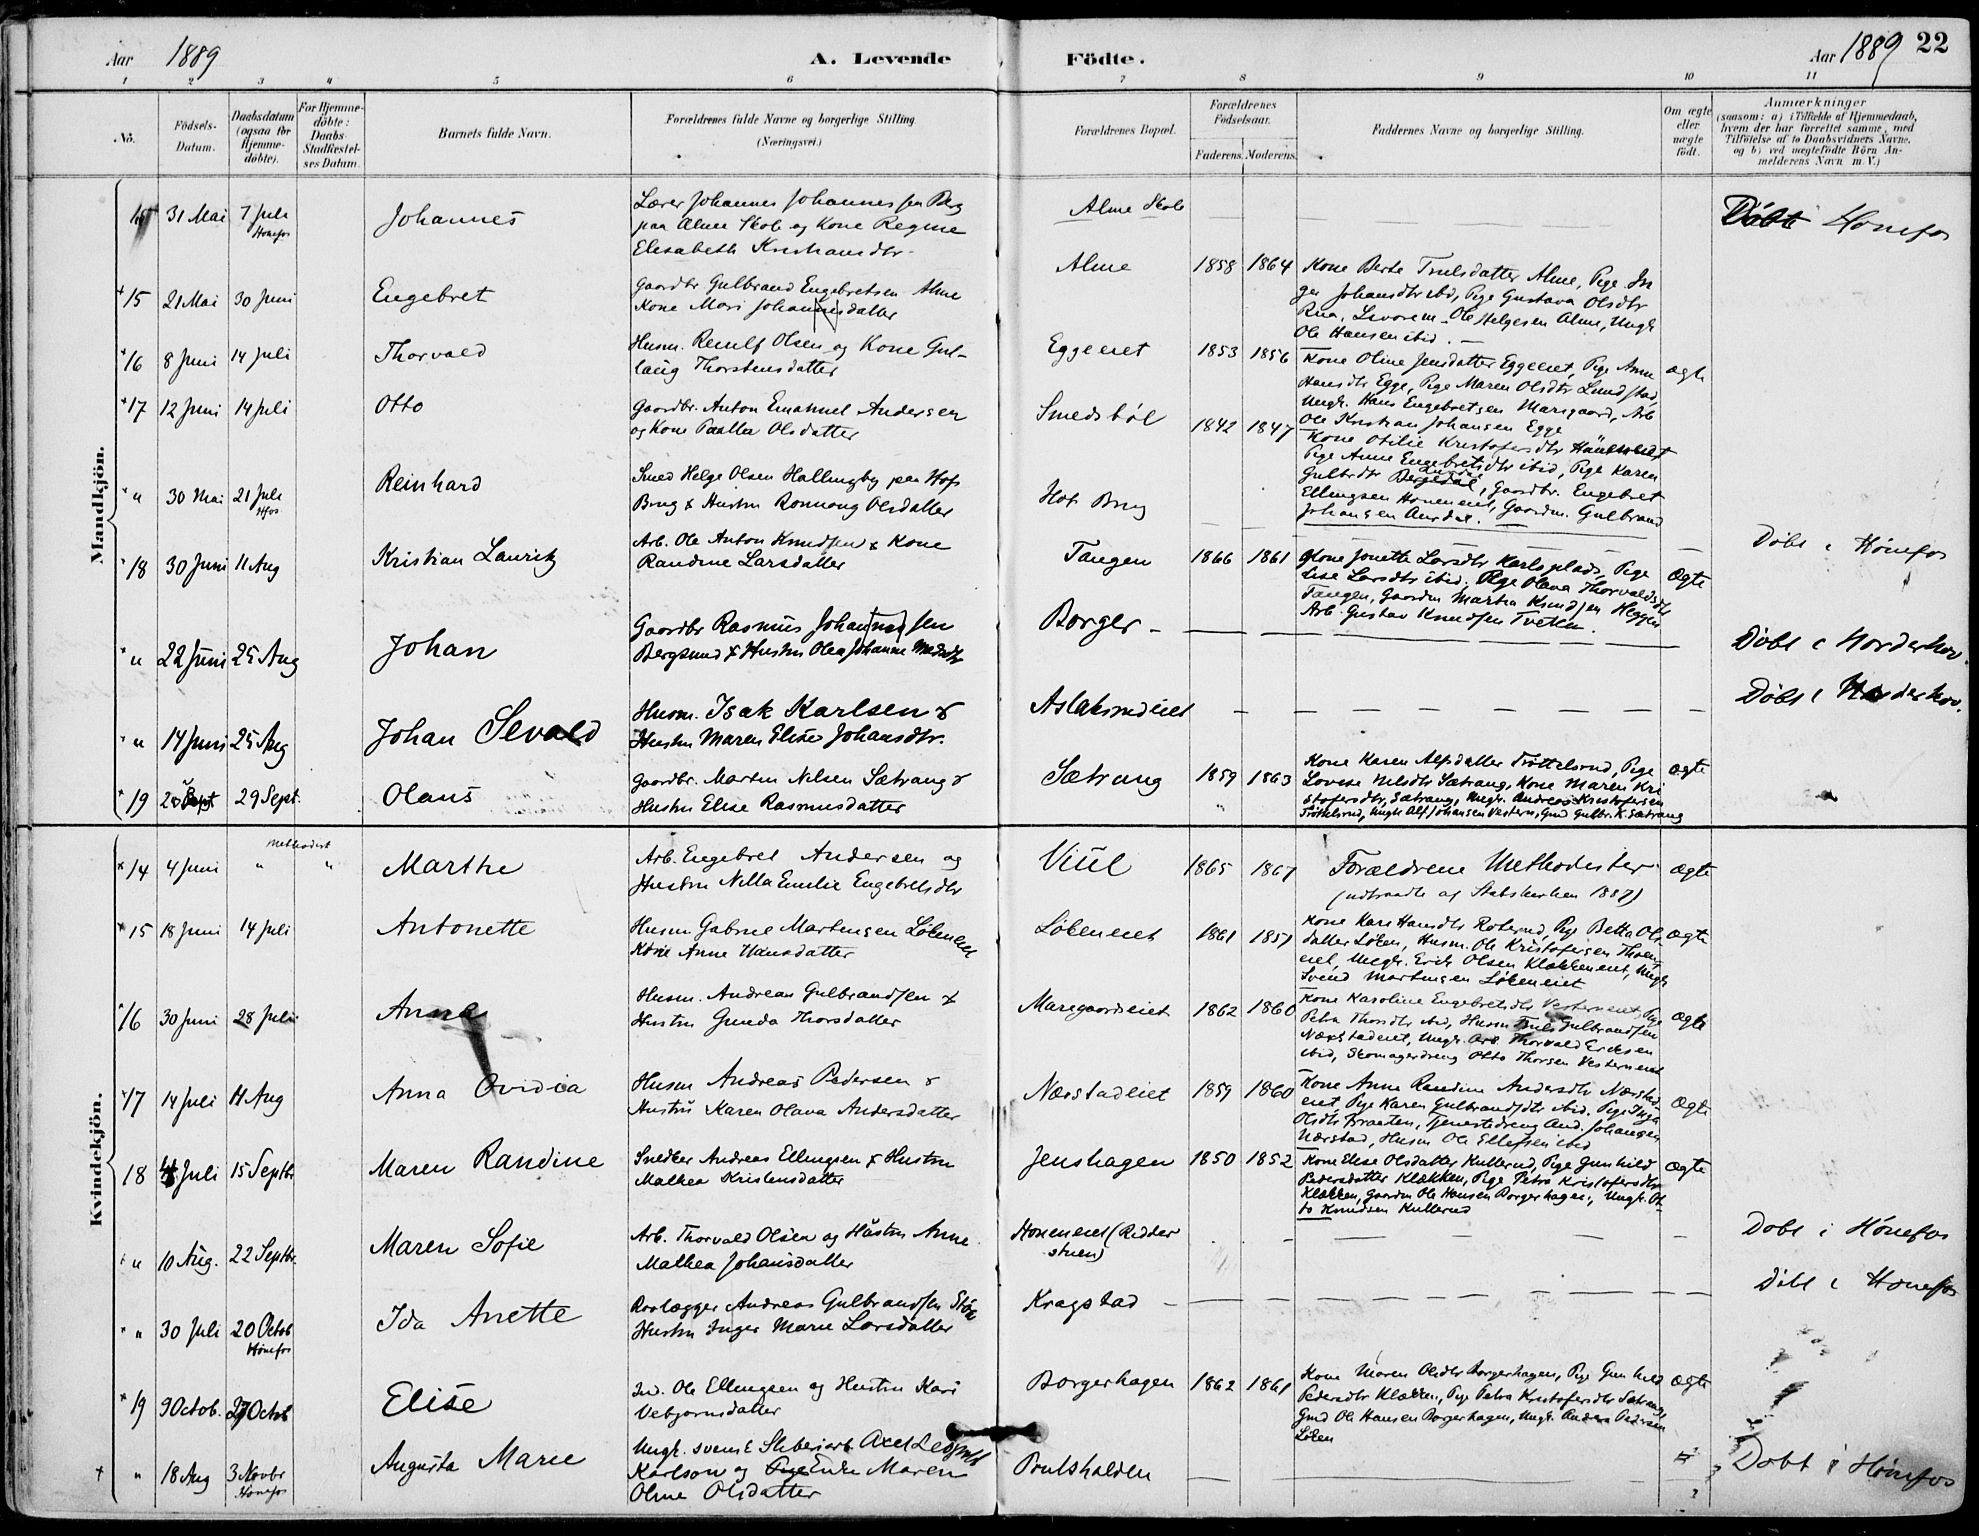 Aar 1889 A. Levende Födte. Aar 1889 22
1 2 3 4 5 6 7 8 9 10 11
No. Födsels-Datum. Daabsdatum (ogsaa för Hjemme-döbte). For Hjemme-döbte: Daabs-Stadfestel-ses Datum. Barnets fulde Navn. Forældrenes fulde Navne og borgerlige Stilling. (Næringsvei.) Forældrenes Bopæl. Forældrenes Födselsaar. Faderens. Moderens. Faddernes Navne og borgerlige Stilling. Om ægte eller uægte födt. Anmærkninger (saasom: a) i Tilfælde af Hjemmedaab, hvem der har forrettet samme, med Tilföielse af to Daabsvidners Navne, og b) ved uægtefödte Börn Anmelderens Navn m. V.)
Mandkjön.
31 Mai 7 Juli Hønefos Johannes Lærer Johannes Johannessen Berg
paa Alme Skole og Kone Regine
Elisabeth Kristiansdtr. Alme Skole Døbt Hønefos
15 21 Mai 30 Juni Engebret Gaardbr Gulbrand Engebretsen Alme
Kone Mari Johannesdatter Alme 1858 1864 Kone Berte Truelsdatter Alme, Pige In
ger Johansdtr ibid, Pige Gustava Olsdtr
Rua, Ole Helgesen Alme, Ungk.
Ole Hansen ibid.
16 8 Juni 14 Juli Thorvald Husm. Reiulf Olsen og Kone Gul-
laug Thorstensdatter Eggeeiet 1853 1856 Kone Oline Jensdatter Eggeeiet, Pige Anne ægte
Hansdtr Egge, Pige Maren Olsdtr Lundstad,
Ungk. Hans Engebretsen Marigaard, Arb
Ole Kristian Johansen Egge
17 12 Juni 14 Juli Otto Gaardbr. Anton Emanuel Andersen
og Kone Olsdatter Smedsbøl 1842 1847 Kone Otilie Kristofersdtr
Pige Anne Engebretsdtr ibid, Pige Karen
Gulbrdtr, Gaardbr. Engebret
Ellingsen Høneneiet, Gaardm. Gulbrand
Johansen Aurdal.
" 30 Mai 21 Juli Hfos Reinhard Smed Helge Olsen Hallingby paa Hofs
Brug & Hustru Ronnaug Olsdatter Hofs Brug Døbt i Hønefos
18 30 Juni 11 Aug Kristian Lauritz Arb. Ole Anton Knudsen & Kone
Randine Larsdatter Tangen 1866 1861 Kone Jonette Larsdtr Karlsplads, Pige ægte
Lise Larsdtr ibid, Pige Olava Thorvaldsdtr
Tangen, Gaardm Martin Knudsen Heggen
Arb. Gustav Knudsen Tveten.
" 22 Juni 25 Aug Johan Gaardbr Rasmus Johannessen
Bergsund & Hustru Olea Johanne Borger Døbt i Norderhov.
" 14 Juni 25 Aug Johan Sevald Husm. Isak Karlsen &
Hustru Maren Elise Johansdtr. Aslaksrudeiet Døbt i Norderhov.
19 29 Sept. Olaus Gaardbr. Martin Nilsen Sætrang &
Hustru Elise Rasmusdatter Sætrang 1859 1863 Kone Karen Alfsdatter Trøttelsrud, Pige ægte
Lovise Nilsdtr Sætrang, Kone Maren Kri
stofersdtr, Sætrang, Ungk. Andreas Kristofersen
Trøttelsrud, Ungk Alf Johansen Vestern, Gmd Gulbr. K. Sætrang
Kvindekjön.
14 4 Juni " Methodist " Marthe Arb. Engebret Andersen og
Hustru Nilla Emilie Engebretsdtr Viul 1865 1867 Forældrene Methodister ægte
(udtraadte af Statskirken 1887)
15 18 Juni 14 Juli Antonette Husm Gabriel Martinsen Løkeneiet
Kone Anne Hansdatter Løkeneiet 1861 1851 Kone Kari Hansdtr Roterud, Pige Betta Ols- ægte
datter Løken, Husm. Ole Kristofersen Thoen-
eiet, Ungk. Erik Olsen Klækkeneiet, Ungk
Svend Martinsen Løkeneiet
16 30 Juni 28 Juli Anna Husm. Andreas Gulbrandsen &
Hustru Gunda Thorsdatter Marigaardseiet 1862 1860 Kone Karoline Engebretsdtr Vesterneiet, Pige ægte
Petra Thorsdtr ibid, Husm Truls Gulbrandsen
Næstadeiet, Ungk. Arb Thorvald Ericksen
ibid, Skomagerdreng Otto Thorsen Vesterneiet
17 14 Juli 11 Aug Anna Ovidia Husm Andreas Pedersen &
Hustru Karen Olava Andersdatter Nærstadeiet 1859 1860 Kone Anne Randine Andersdtr Nærstad- ægte
eiet, Pige Karen Gulbrandsdtr ibid. Pige Inga
Olsdtr Braaten, Tjenestedreng And. Johansen
Nærstad, Husm Ole Ellefsen ibid
18 Juli 15 Septbr Maren Randine Snedker Andreas Ellingsen & Hustru
Mathea Kristensdatter Jenshagen 1850 1852 Kone Elise Olsdatter Kullerud, Pige Gunhild ægte
Pedersdatter Klækken, Pige Petra Kristofersdtr
Klækken, Gaardm Ole Hansen Borgerhagen, Ungk. Ot-
to Knudsen Kullerud
" 10 Aug. 22 Septbr. Maren Sofie Arb. Thorvald Olsen og Hustru Anne
Mathea Johansdatter Høneneiet (Ridder
stuen) Døbt i Hønefos
" 30 Juli 20 Octob Hønefos Ida Anette Rørlægger Andreas Gulbrandsen
Hustru Inger Marie Larsdatter Kragstad Døbt i Hønefos
19 9 Octob. 27 Octob Elise Ole Ellingsen og Hustru Kari
Vebjørnsdatter Borgerhagen 1862 1861 Kone Maren Olsdtr Borgerhagen, Pige Gunhild ægte
Pedersdtr Klækken, Pige Petra Kristofersdtr Sætrang,
Gmd Ole Hansen Borgerhagen, Ungk. Anders Pedersen
Løken
" 18 Aug 3 Novbr Hønefos Augusta Marie Ungk. svensk Sliberiarb. Axel
Karlson og Enke Maren
Oline Olsdatter Prutshalden Døbt i Hønefos